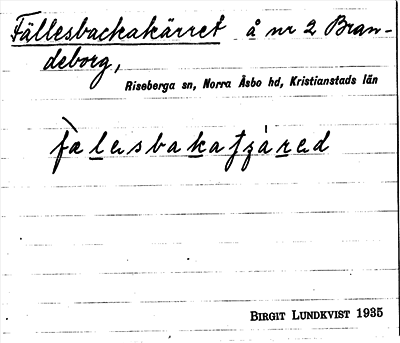 Fällesbackakärret å nr 2 Bran-
deborg,
Riseberga sn, Norra Åsbo hd, Kristianstads län
BIRGIT LUNDKVIST 1935